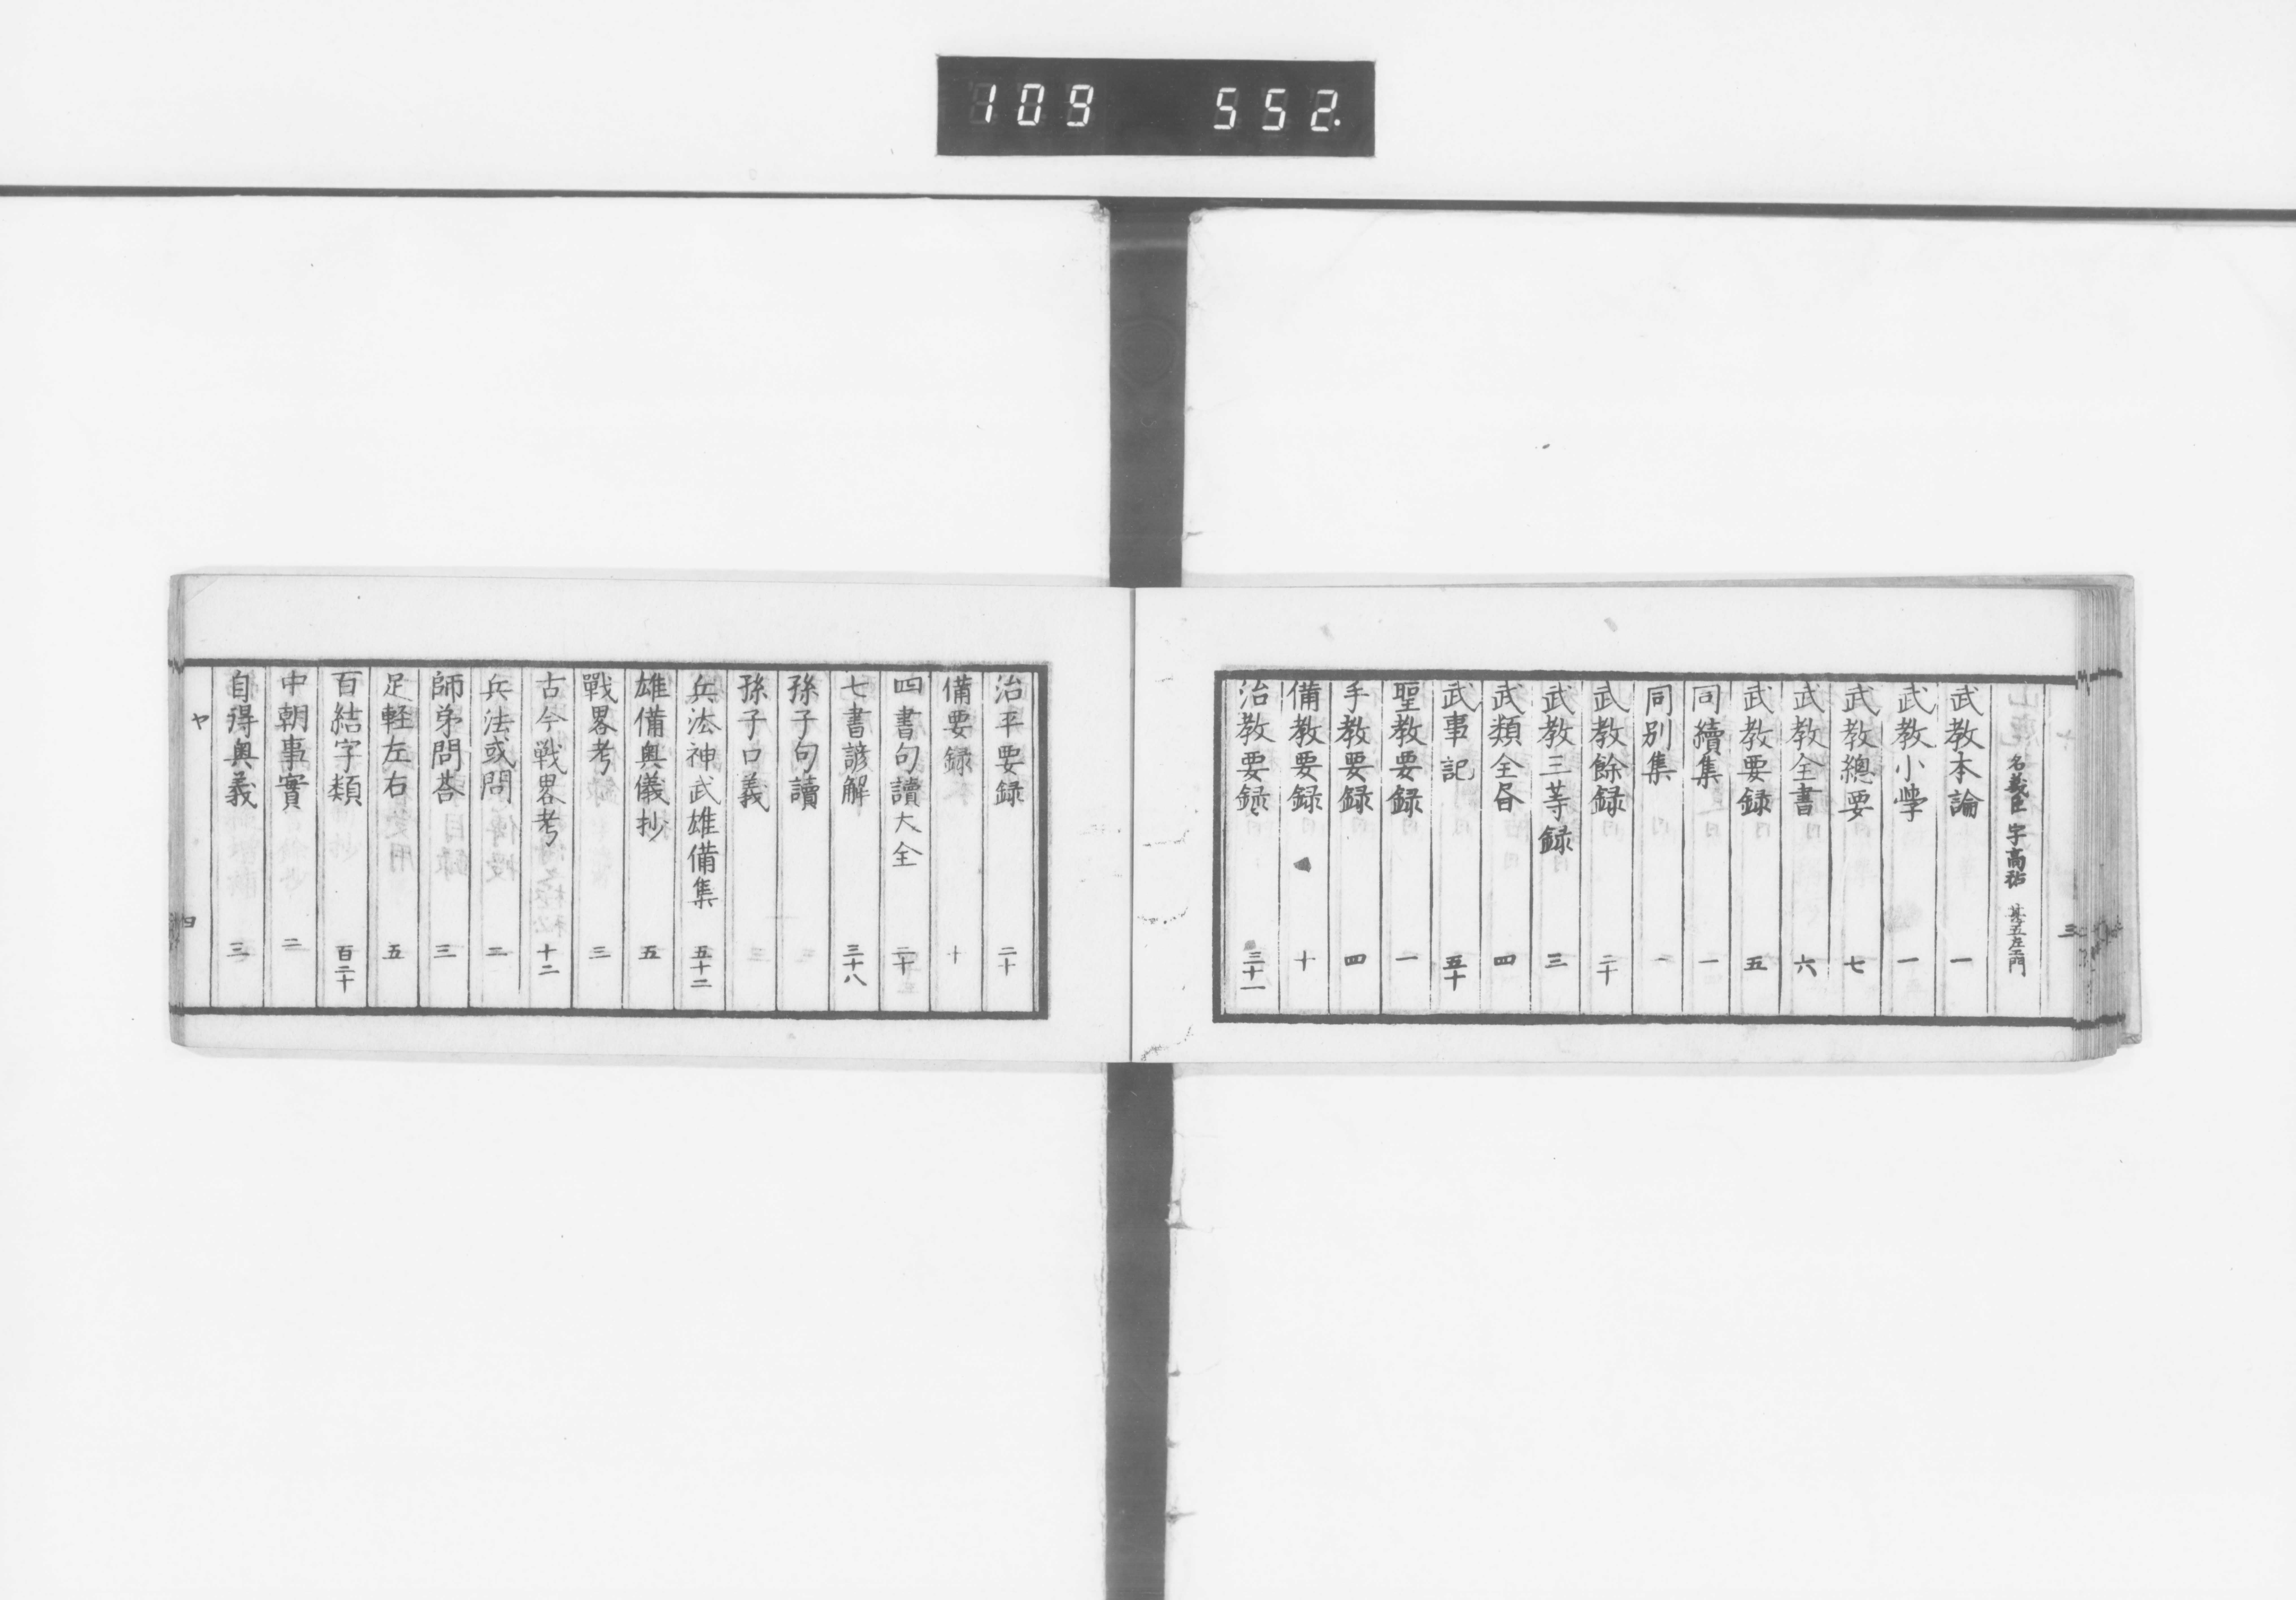 109 552.
名義臣 字高祐 甚五左衛門
武教本論 一
武教小學 一
武教總要 七
武教全書 六
武教要録 五
同續集 一
同別集 一
武教餘録 二十
武教三等録 三
武類全昝 四
武事記 五十
聖教要録 一
手教要録 四
備教要録 十
治教要録 三十一
三
治平要録 二十
備要録 十
四書句讀大全 二十
七書諺解 三十八
孫子句讀
孫子口義
兵法神武雄備集 五十二
雄備奥儀抄 五
戰畧考 三
古今戰畧考 十二
兵法或問 二
師弟問荅 三
足軽左右 五
百結字類 百二十
中朝事實 二
自得奥義 三
ヤ 四